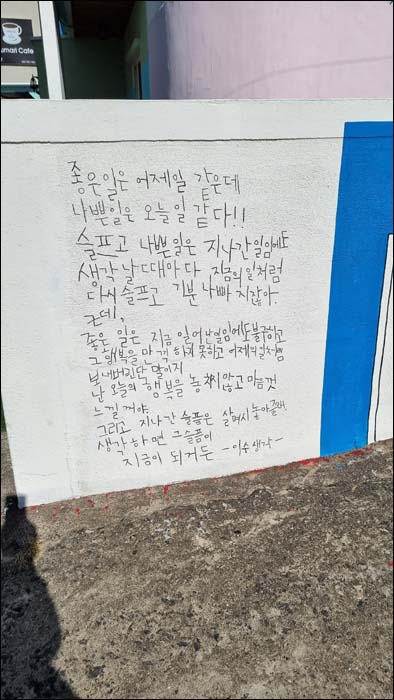 umari Cafe
좋은 일은 어제일 같은데
나쁜일은 오늘일 같다!!
슬프고 나쁜일은 지나간일임에도
생각날 때마다 지금의 일처럼
다시 슬프고 기분 나빠 지잖아.
근데,
좋은 일은 지금 일어난일임에도불구하고
그행복을 만끽하지 못하고 어제의일처럼
보내버린단 말이지
난 오늘의 행복을 놓치지 않고 마음껏
느낄꺼야
그리고 지나간 슬픔은 살며시 놓아줄래.
생각하면 그슬픔이
지금이 되거든 -이수생각-